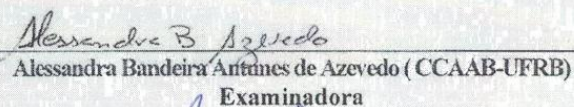 Alessandra B Azevedo
Alessandra Bandeira Antunes de Azevedo ( CCAAB-UFRB)
Examinadora